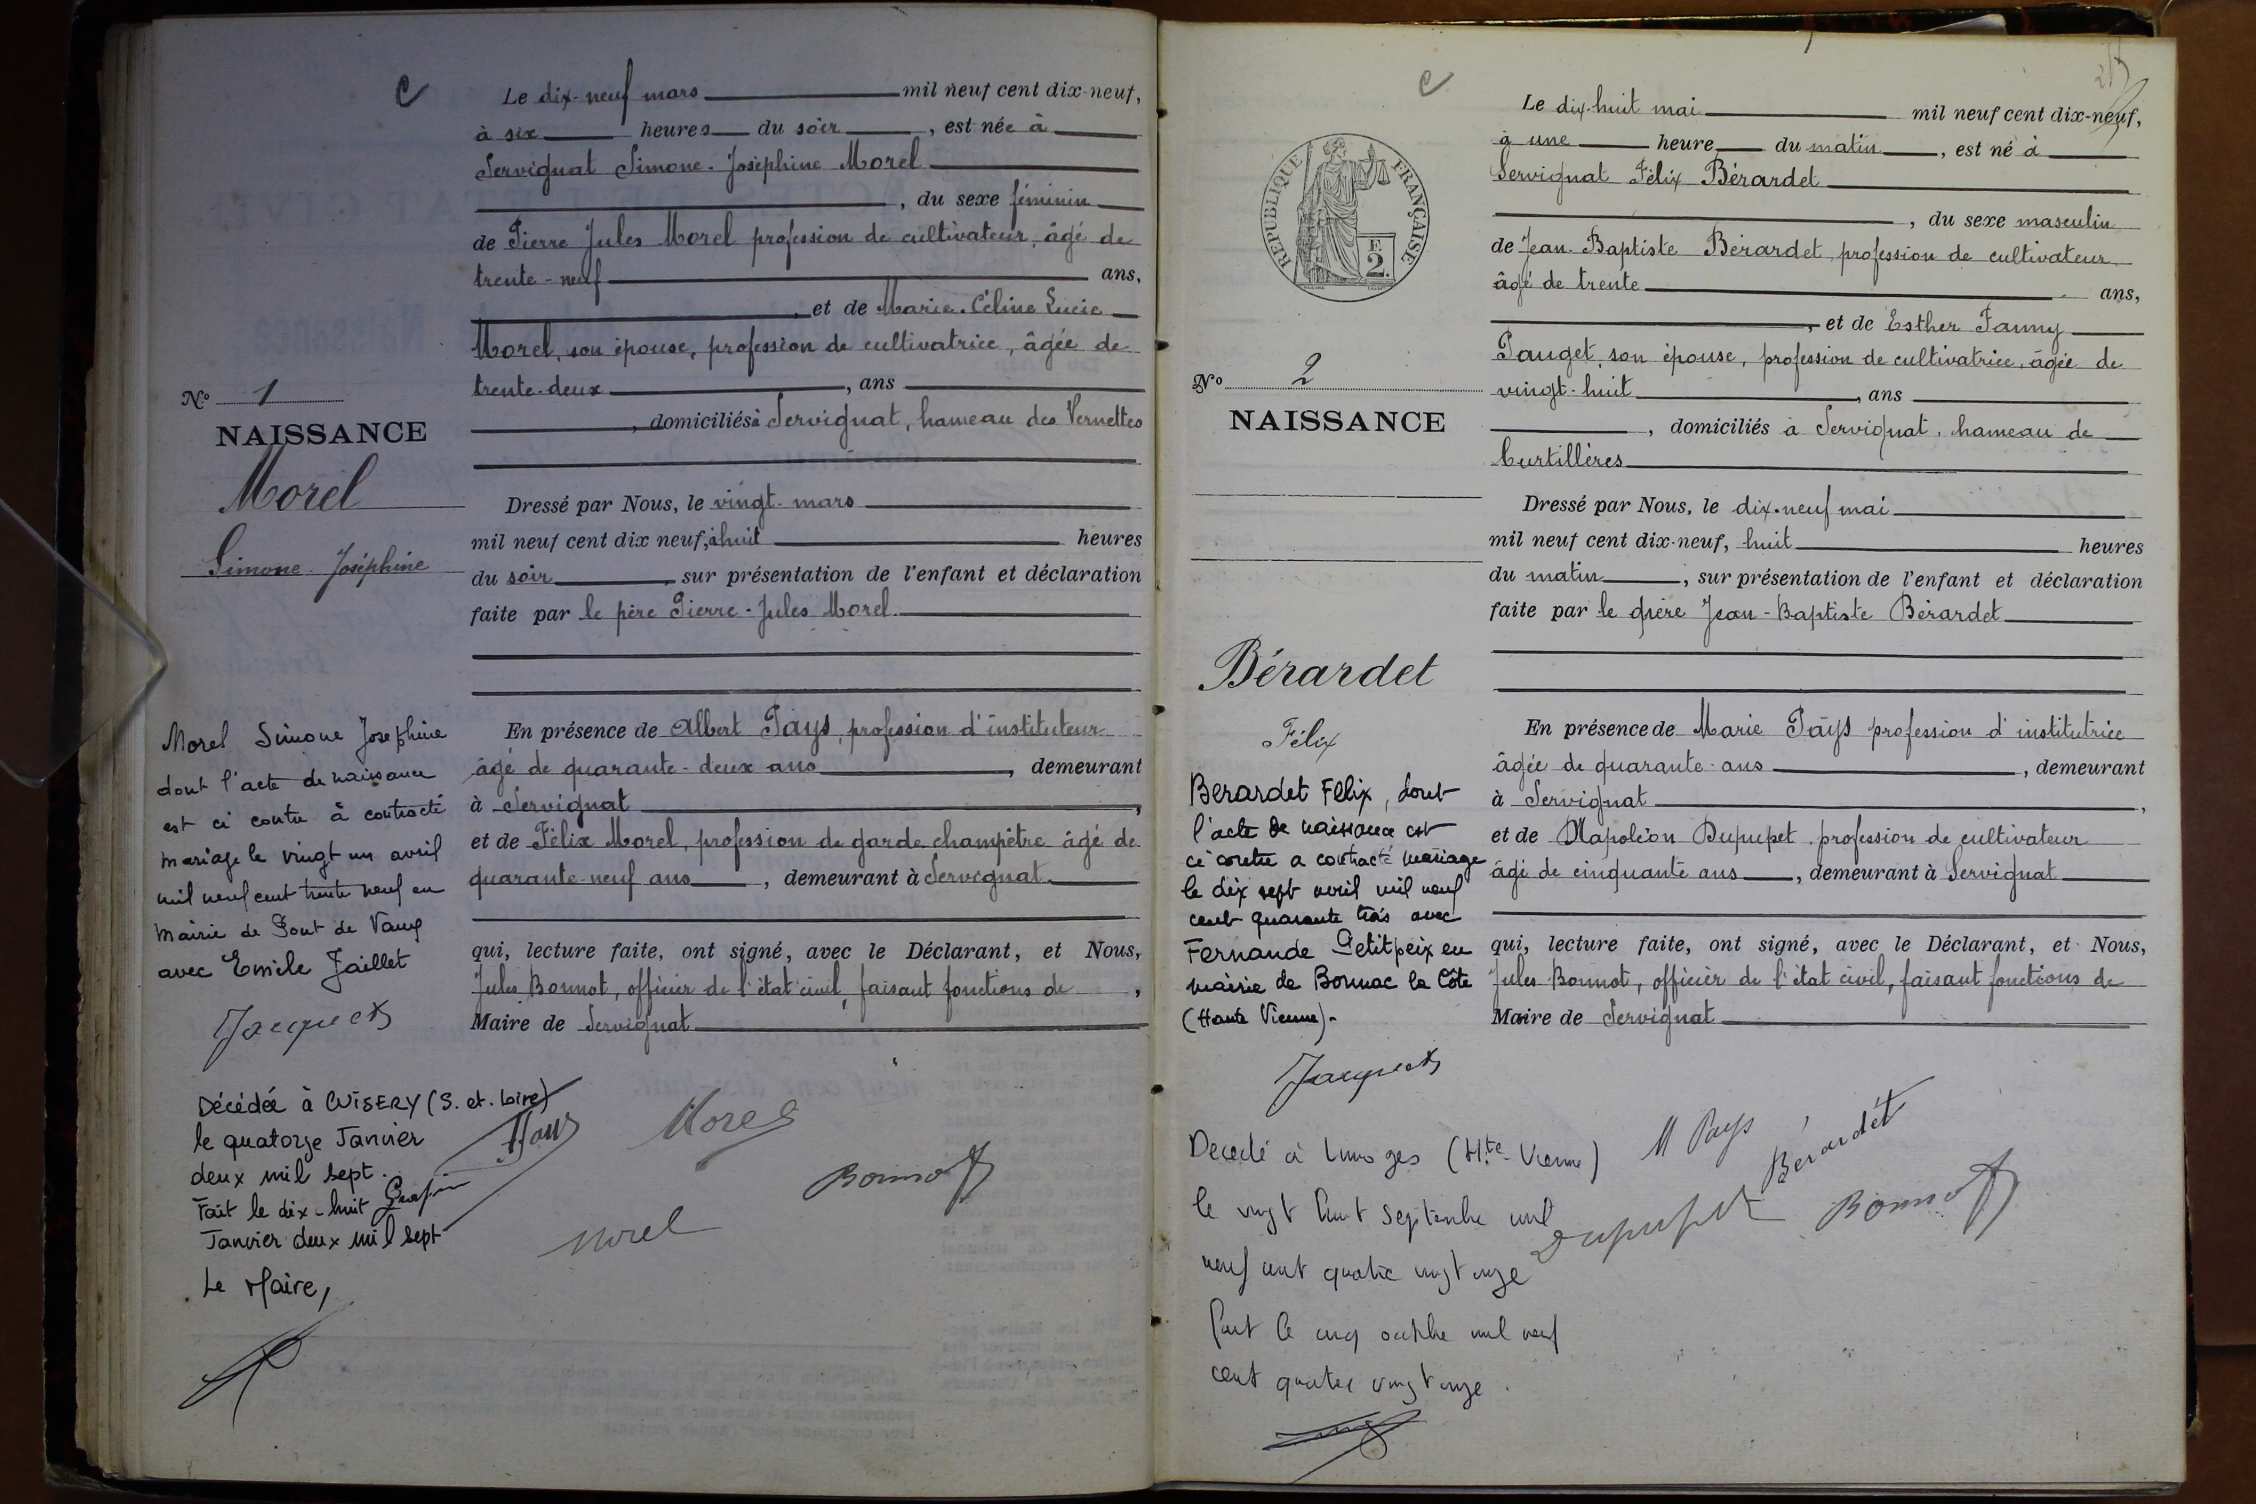 Le dix-neuf mars mil neuf cent dix-neuf,
à six heures du soir, est née à
Servignat Simone-Joséphine Morel
, du sexe féminin
de Pierre Jules Morel profession de cultivateur, âgé de
trente-neuf ans,
, et de Marie-Céline Lucie
Morel, son épouse, profession de cultivatrice, âgée de
trente-deux, ans
, domiciliés à Servignat, hameau des Vernettes
Dressé par Nous, le vingt-mars
mil neuf cent dix neuf, à huit heures
du soir, sur présentation de l'enfant et déclaration
faite par le père Pierre-Jules Morel
En présence de Albert Pays, profession d'instituteur
âgé de quarante-deux ans, demeurant
à Servignat,
et de Félix Morel, profession de garde champêtre âgé de
quarante-neuf ans, demeurant à Servignat
qui, lecture faite, ont signé, avec le Déclarant, et Nous,
Jules Bonnot, officier de l'état civil, faisant fonctions de,
Maire de Servignat
N° 1
NAISSANCE
Morel
Simone Joséphine
Morel Simone Josephine
dont l'acte de naissance
est ci contre à contracté
mariage le vingt un avril
mil neuf cent trente neuf en
mairie de Pont de Vaux
avec Emile Jaillet
Jacquet
Décédée à CUISERY (S. et. Loire)
le quatorze Janvier
deux mil sept.
Fait le dix-huit
Janvier deux mil sept
Le Maire,
Pays
Morel
Bonnot
Morel
Le dix-huit mai mil neuf cent dix-neuf,
à une heure du matin, est né à
Servignat Félix Bérardet
, du sexe masculin
de Jean-Baptiste Bérardet, profession de cultivateur
âgé de trente ans,
, et de Esther Fanny
Pauget, son épouse, profession de cultivatrice, âgée de
vingt-huit, ans
, domiciliés à Servignat, hameau de
Curtillères
Dressé par Nous, le dix-neuf mai
mil neuf cent dix-neuf, huit heures
du matin, sur présentation de l'enfant et déclaration
faite par le père Jean-Baptiste Bérardet
En présence de Marie Pays profession d'institutrice
âgée de quarante-ans, demeurant
à Servignat,
et de Napoléon Dupupet, profession de cultivateur
âgé de cinquante ans, demeurant à Servignat
qui, lecture faite, ont signé, avec le Déclarant, et Nous,
Jules Bonnot, officier de l'état civil, faisant fonctions de
Maire de Servignat
RÉPUBLIQUE FRANÇAISE
F.
2.
N° 2
NAISSANCE
Bérardet
Félix
Berardet Félix, dont
l'acte de naissance est
ci contre a contracté mariage
le dix sept avril mil neuf
cent quarante trois avec
Fernande Petitpeix en
mairie de Bonnac la Côte
(Haute Vienne).
Jacquet
Decedé à Limoges (Hte Vienne)
le vingt huit Septembre mil
neuf cent quatre vingt onze
fait le cinq octobre mil neuf
cent quatre vingt onze.
M Pays
Bérardet
Dupupet
Bonnot